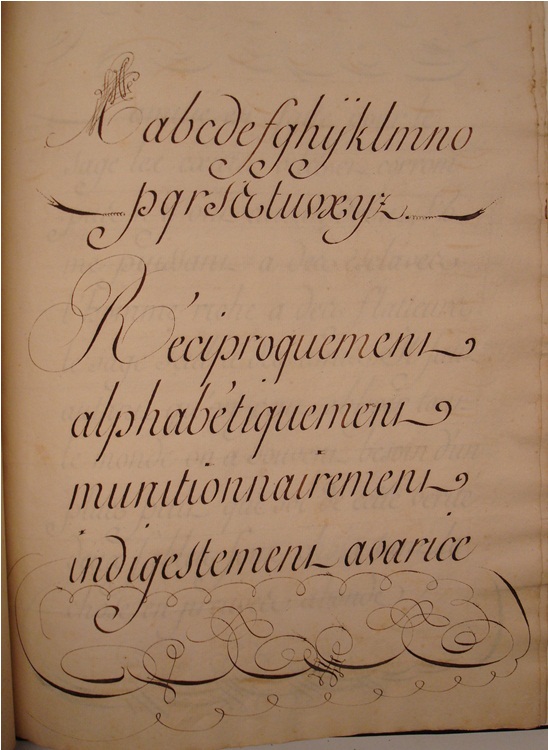 A abcdefghijklmno
pqrsætuvxyz.
Réciproquement
alphabétiquement
munitionnairement
indigestement avarice